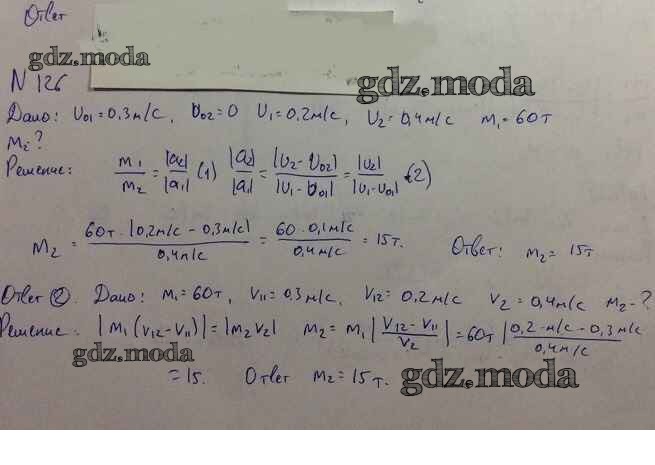 Ответ
gdz.moda
N 126
gdz.moda
Дано: υ₀₁ = 0,3 м/с, υ₀₂ = 0 υ₁ = 0,2 м/с, υ₂ = 0,4 м/с m₁ = 60 т
m₂ ?
Решение: m₁/m₂ = |a₂|/|a₁| (1) |a₂|/|a₁| = |υ₂ - υ₀₂|/|υ₁ - υ₀₁| = |υ₂|/|υ₁ - υ₀₁| (2)
m₂ = 60 т · |0,2 м/с - 0,3 м/с|/0,4 м/с = 60 · 0,1 м/с/0,4 м/с = 15 т. Ответ: m₂ = 15 т
Ответ ②. Дано: m₁ = 60 т, v₁₁ = 0,3 м/с, v₁₂ = 0,2 м/с v₂ = 0,4 м/с m₂ - ?
Решение. |m₁(v₁₂ - v₁₁)| = |m₂v₂| m₂ = m₁ |v₁₂ - v₁₁/v₂| = 60 т |0,2 м/с - 0,3 м/с/0,4 м/с|
gdz.moda
= 15. Ответ m₂ = 15 т.
gdz.moda